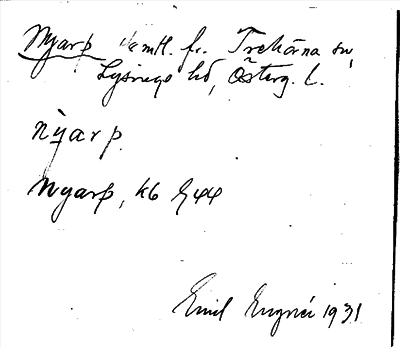 Nyarp samtl. fr. Trehörna sn,
Lysings hd, Österg. l.
nyarp
Nyarp, kb
Emil 1931